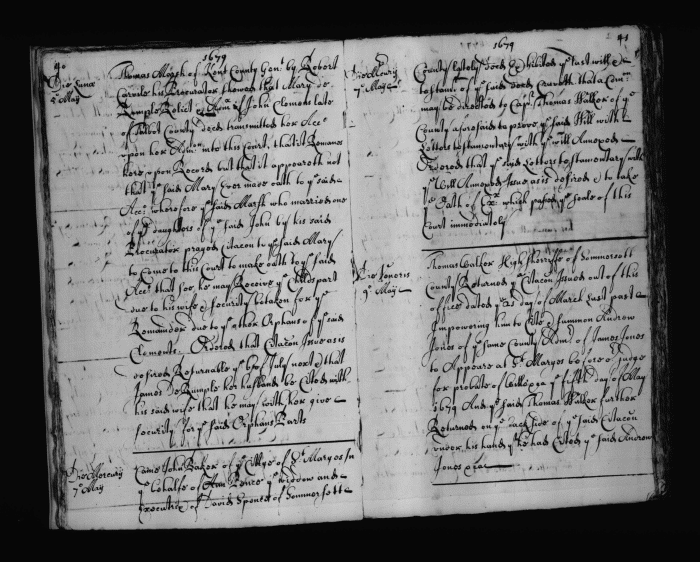 40
1679
Die Lunæ
5° May
Thomas Marsh of Kent County Gent. by Robert
Carvile his Procurator shewed that Mary de
Rumple Relict & Admx of John Clemons late
of Talbot County deced transmitted her Acct
upon her Admon into this Court, that it Remaines
here upon Record but that it appeareth not
that ye said Mary ever made oath to ye said
Acct wherefore ye said Marsh who married one
of ye daughters of ye said John by his said
Procurator prayed citacon to ye said Mary
to Come to this Court to make oath to ye said
Acct that soe he may Receive ye Childs part
due to his wife & security be taken for ye
Remainder due to ye other Orphans of ye said
Clements. Ordered that Citacon Issue as is
desired Returnable ye 6th of July next & that
James De Rumple her husband be Cited with
his said wife that he may with her give
security for ye said Orphans Parts
Die Mercurij
7° May
Came John Baker of ye Citty of St Maryes in
ye behalfe of Ann Spence ye Widdow and
Executrix of David Spence of Sommersett
41
1679
Die Mercurij
7° May
County lately deced Exhibited ye last will &
testamt of ye said deced Craveth that a Comn
may be directed to Capt Thomas Walker of ye
County aforesaid to prove ye said Will with
Letters testamentary with ye will Annexed
Ordered that ye said Letters testamentary with
ye Will Annexed Issue as is desired & to take
ye Oath of Exx which passed ye Seale of this
Court immediately
Die Jovis
9° May
Thomas Walker High Sherriffe of Sommersett
County Returned ye Citacon Issued out of this
office dated ye day of March last past
Impowering him to Cite & summon Andrew
Jones of ye same County Admr of James Jones
to Appeare at St Maryes before ye Judge
for probate of Wills &c ye fifth day of May
1679 And ye said Thomas Walker further
Returned on ye back side of ye said Citacon
under his hand yt he had Cited ye said Andrew
Jones